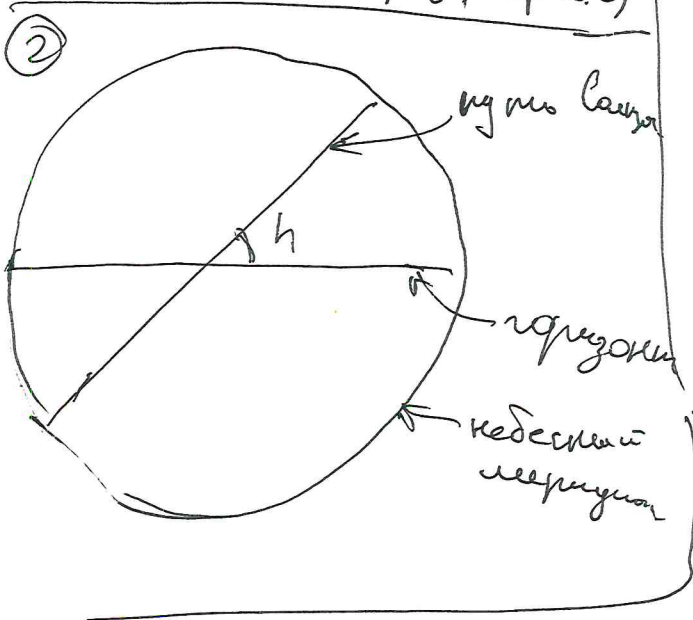 ②
путь Солнца
h
горизонт
небесный
меридиан